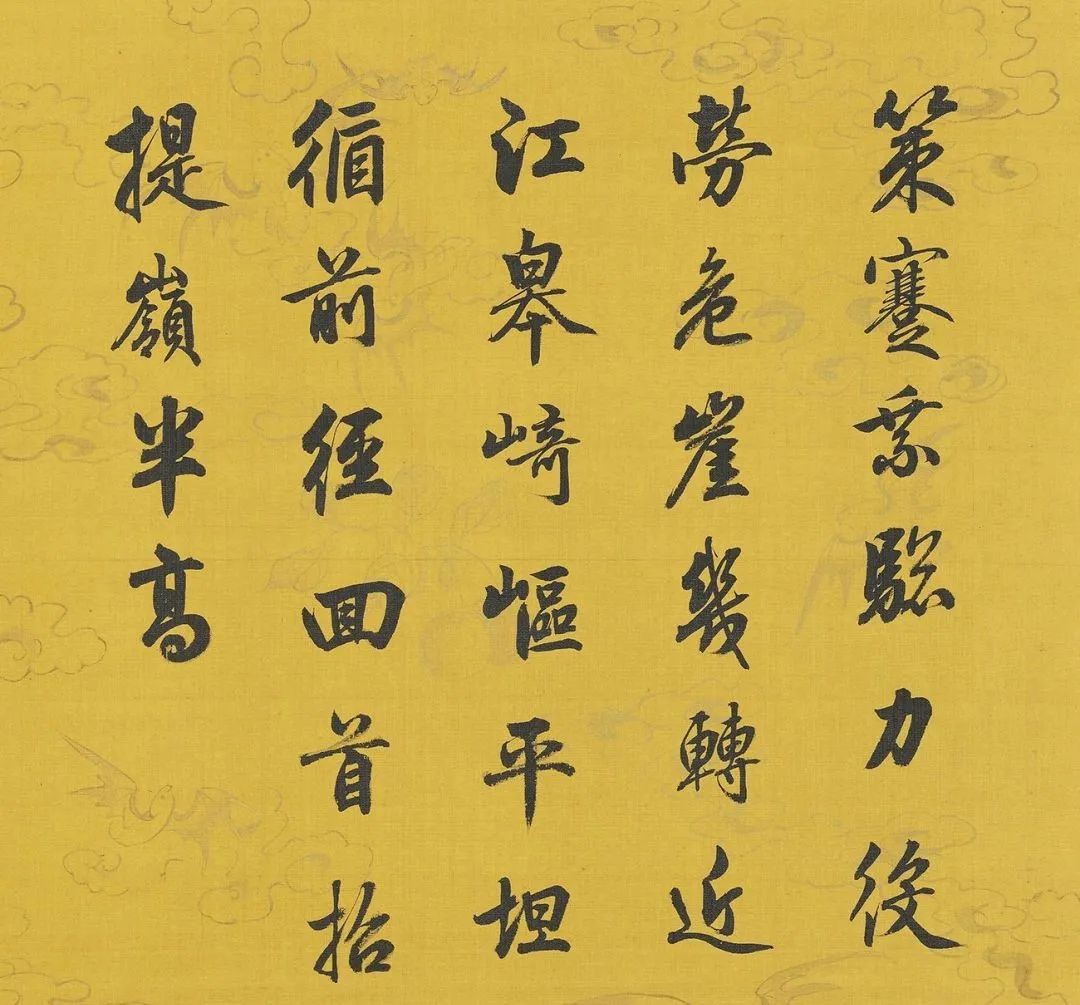 策蹇乘驄力役
勞危崖幾轉近
江皋崎嶇平坦
循前徑回首招
提嶺半高